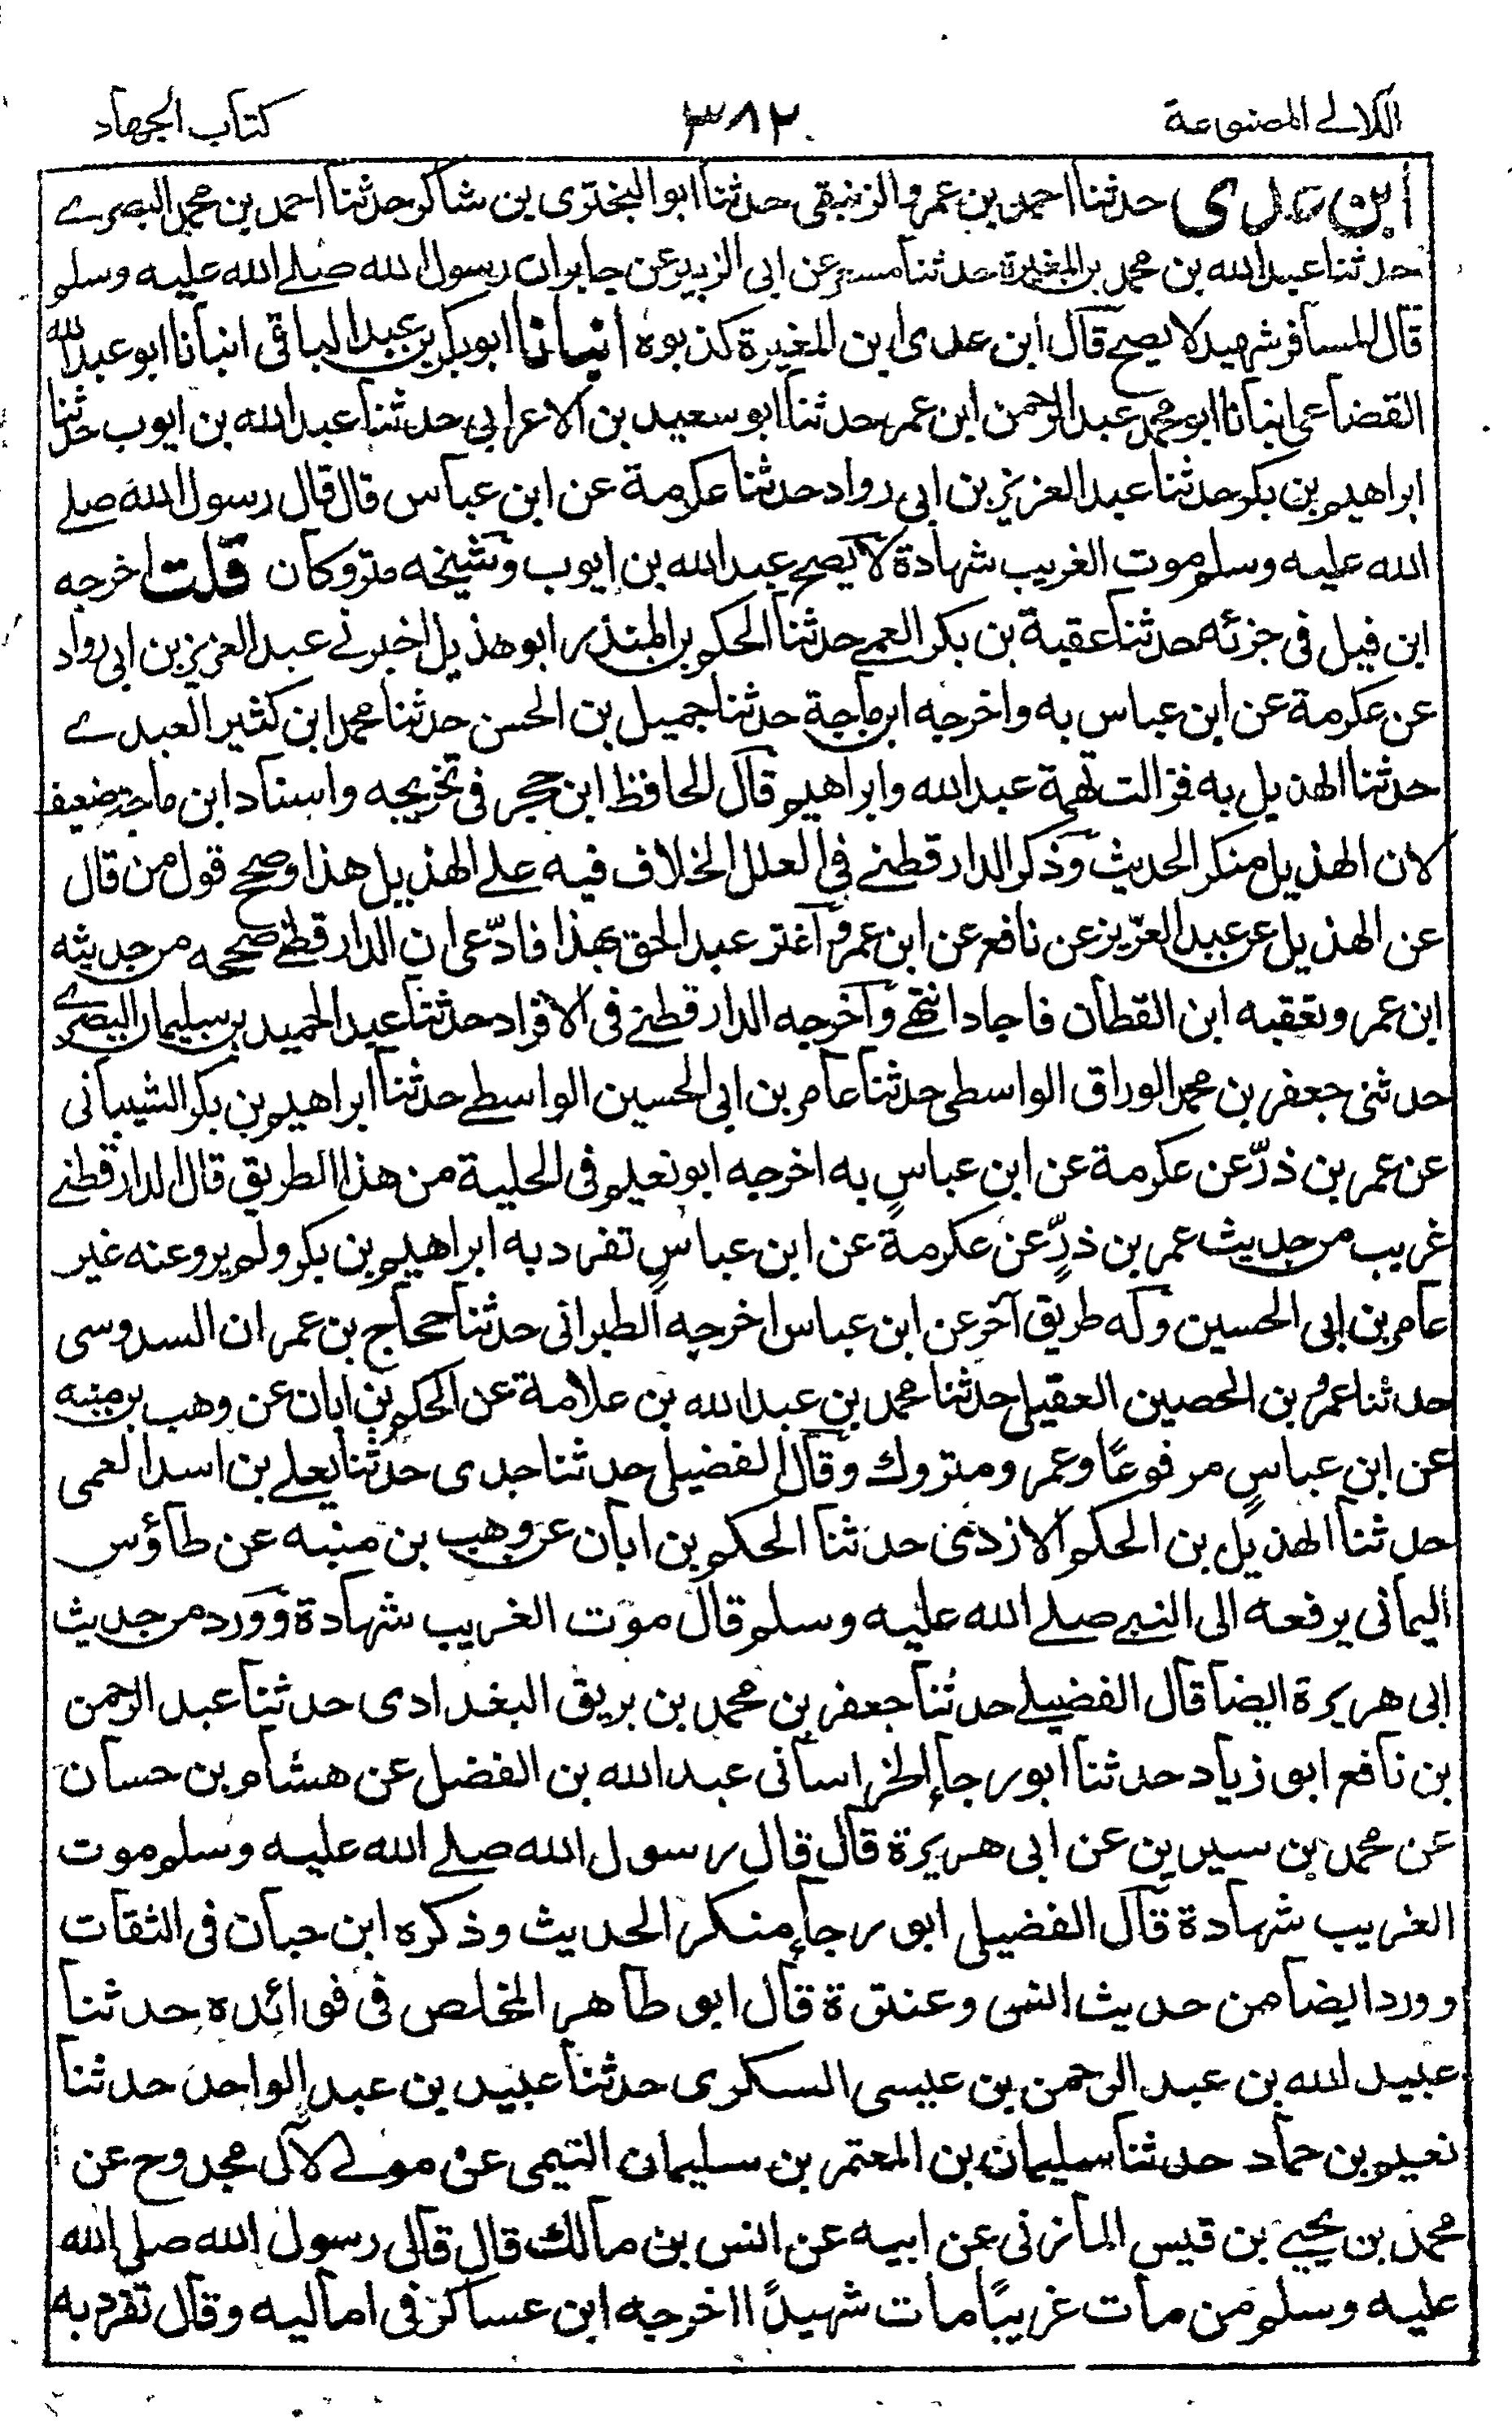 اللآلے المصنوعة
٣٨٢
كتاب الجهاد
ابن عدى حدثنا احمد بن عمرو الزنبقى حدثنا ابو البخترى بن شاكر حدثنا احمد بن محمد البصرے
حدثنا عبد الله بن محمد بن المغيرة حدثنا مسعر عن ابى الزبير عن جابر ان رسول الله صلے الله عليه وسلم
قال المسافر شهيد لا يصح قال ابن عدى ابن المغيرة كذبوه انبانا ابو بكر بن عبد الباقى انبأنا ابو عبد الله
القضاعى انبانا ابو محمد عبد الرحمن ابن عمر حدثنا ابو سعيد بن الاعرابى حدثنا عبد الله بن ايوب حدثنا
ابراهيم بن بكر حدثنا عبد العزيز بن ابى رواد حدثنا عكرمة عن ابن عباس قال قال رسول الله صلے
الله عليه وسلم موت الغريب شهادة لا يصح عبد الله بن ايوب وشيخه متروكان قلت اخرجه
ابن فيل فى جزئه حدثنا عقبة بن بكر العمے حدثنا الحكم بن المنذر ابو هذيل اخبرنے عبد العزيز بن ابى رواد
عن عكرمة عن ابن عباس به واخرجه ابن ماجة حدثنا جميل بن الحسن حدثنا محمد ابن كثير العبدے
حدثنا الهذيل به فزالت تهمة عبد الله وابراهيم قال الحافظ ابن حجر فى تخريجه واسناد ابن ماجة ضعيف
لان الهذيل منكر الحديث وذكر الدارقطنے فى العلل الخلاف فيه علے الهذيل هذا وصحح قول من قال
عن الهذيل عن عبد العزيز عن نافع عن ابن عمر واغتر عبد الحق بهذا فادّعى ان الدارقطنے صححه من حديثه
ابن عمر وتعقبه ابن القطان فاجاد انتهے واخرجه الدارقطنے فى الافراد حدثنا عبد الحميد بن سليمان البصرے
حدثنى جعفر بن محمد الوراق الواسطى حدثنا عامر بن ابى الحسين الواسطے حدثنا ابراهيم بن بكر الشيبانى
عن عمر بن ذرّ عن عكرمة عن ابن عباسٍ به اخرجه ابو نعيم فى الحلية من هذا الطريق قال الدارقطنے
غريب من حديث عمر بن ذرٍّ عن عكرمة عن ابن عباسٍ تفرد به ابراهيم بن بكر ولم يرو عنه غير
عامر بن ابى الحسين وله طريق آخر عن ابن عباس اخرجه الطبرانى حدثنا حجاج بن عمران السدوسى
حدثنا عمرو بن الحصين العقيلى حدثنا محمد بن عبد الله بن علامة عن الحكم بن ابان عن وهب بن منبه
عن ابن عباسٍ مرفوعًا وعمرو متروك وقال الفضيلى حدثنا جدى حدثنا يعلے بن اسد العمى
حدثنا الهذيل بن الحكم الازدى حدثنا الحكم بن ابان عن وهب بن منبه عن طاؤس
اليمانى يرفعه الى النبے صلے الله عليه وسلم قال موت الغريب شهادة وورد من حديث
ابى هريرة ايضا قال الفضيلے حدثنا جعفر بن محمد بن بريق البغدادى حدثنا عبد الرحمن
بن نافع ابو زياد حدثنا ابو رجاء الخراسانى عبد الله بن الفضل عن هشام بن حسان
عن محمد بن سيرين عن ابى هريرة قال قال رسول الله صلے الله عليه وسلم موت
الغريب شهادة قال الفضيلى ابو رجاءٍ منكر الحديث وذكره ابن حبان فى الثقات
وورد ايضا من حديث انس وعنترة قال ابو طاهر المخلص فى فوائده حدثنا
عبيد الله بن عبد الرحمن بن عيسى السكرى حدثنا عبيد بن عبد الواحد حدثنا
نعيم بن حماد حدثنا سليمان بن المعتمر بن سليمان التيمى عن مولے لآل مجدوح عن
محمد بن يحيے بن قيس المازنى عن ابيه عن انس بن مالك قال قال رسول الله صلى الله
عليه وسلم من مات غريبًا مات شهيدًا اخرجه ابن عساكر فى اماليه وقال تفرد به